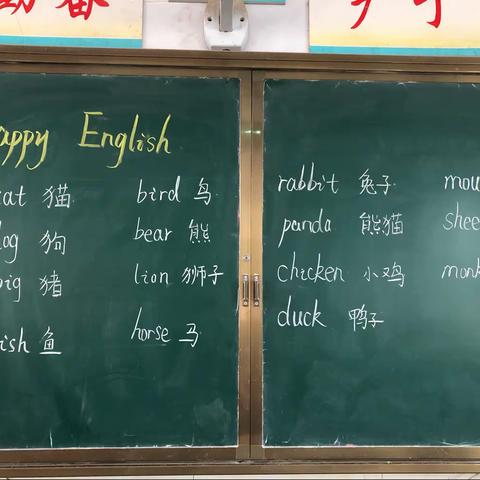 appy English
cat 猫 bird 鸟
dog 狗 bear 熊
pig 猪 lion 狮子
ish 鱼 horse 马
rabbit 兔子 mou
panda 熊猫 shee
chicken 小鸡 monk
duck 鸭子